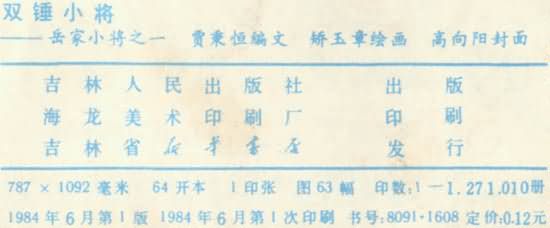 双锤小将
——岳家小将之一 贾秉恒编文 矫玉章绘画 高向阳封面
吉林人民出版社出版
海龙美术印刷厂印刷
吉林省新华书店发行
787×1092毫米 64开本 1印张 图63幅 印数:1—1.271.010册
1984年6月第1版 1984年6月第1次印刷 书号:8091·1608 定价:0.12元